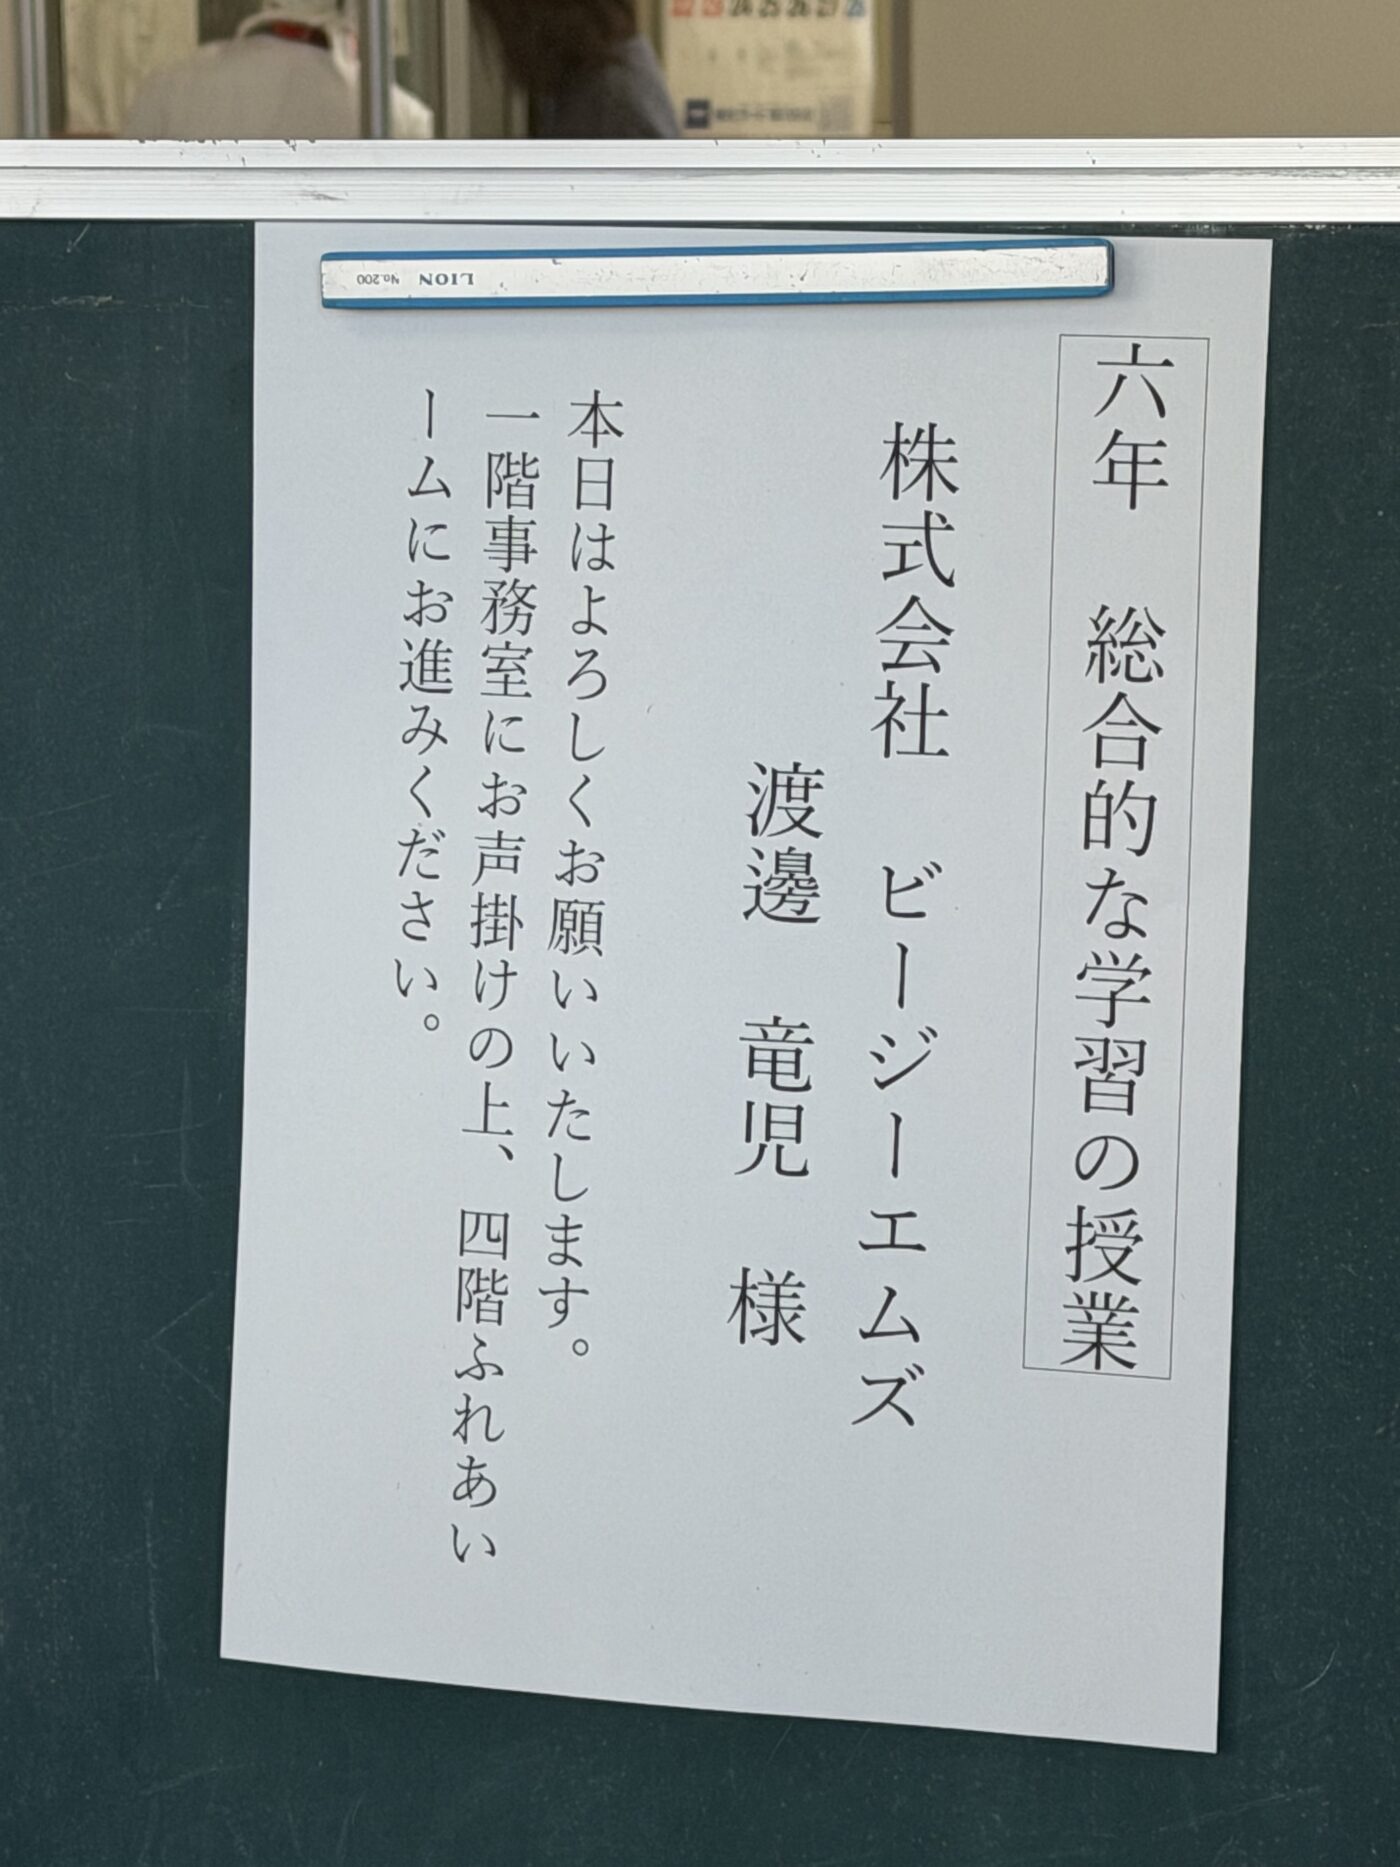 六年　総合的な学習の授業
株式会社　ビージーエムズ
渡邊　竜児　様
本日はよろしくお願いいたします。
一階事務室にお声掛けの上、四階ふれあい
ームにお進みください。
LION No.200
22 23 24 25 26 27 28